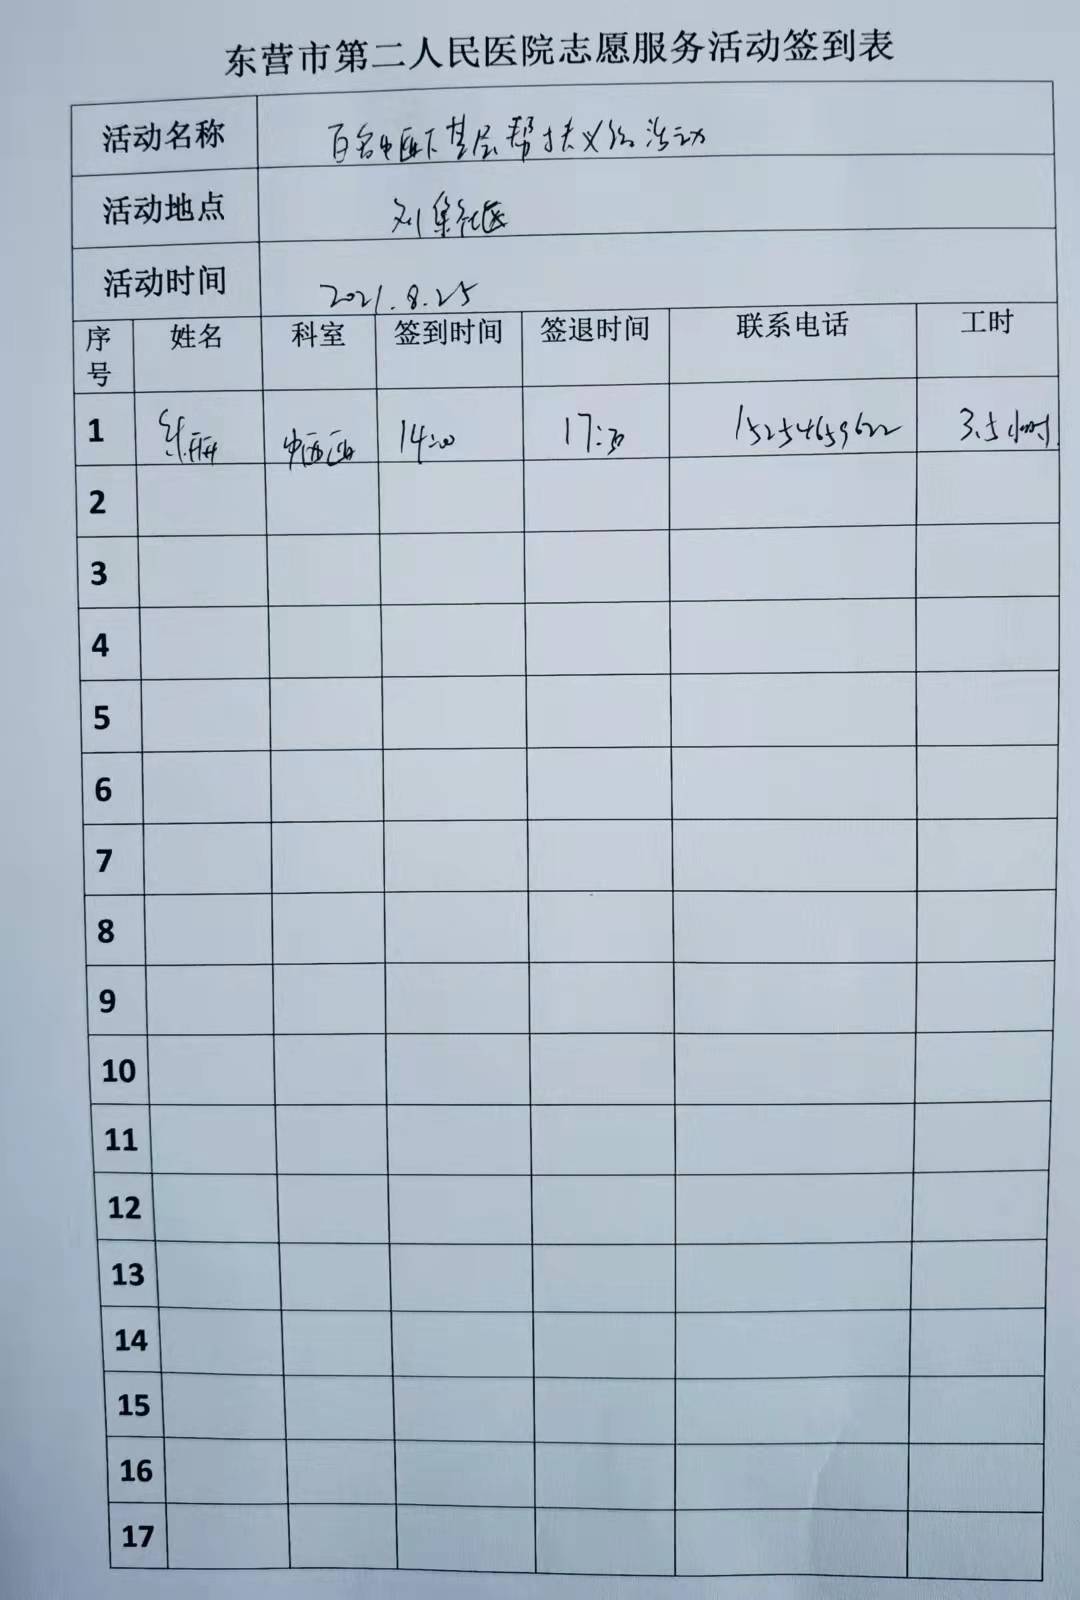 东营市第二人民医院志愿服务活动签到表
活动名称 百名中医下基层帮扶义诊活动
活动地点 刘集社区
活动时间 2021.8.25
序号 姓名 科室 签到时间 签退时间 联系电话 工时
1 中西医 14:00 17:30 15254659622 3.5小时
2
3
4
5
6
7
8
9
10
11
12
13
14
15
16
17